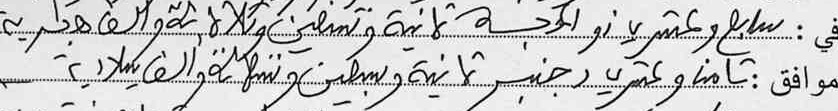 في : سابع وعشرين ذو الحجة ثمانية وتسعين وثلاثمائة وألف هجرية
موافق : ثامن وعشرين دجنبر ثمانية وسبعين وتسعمائة وألف ميلادية